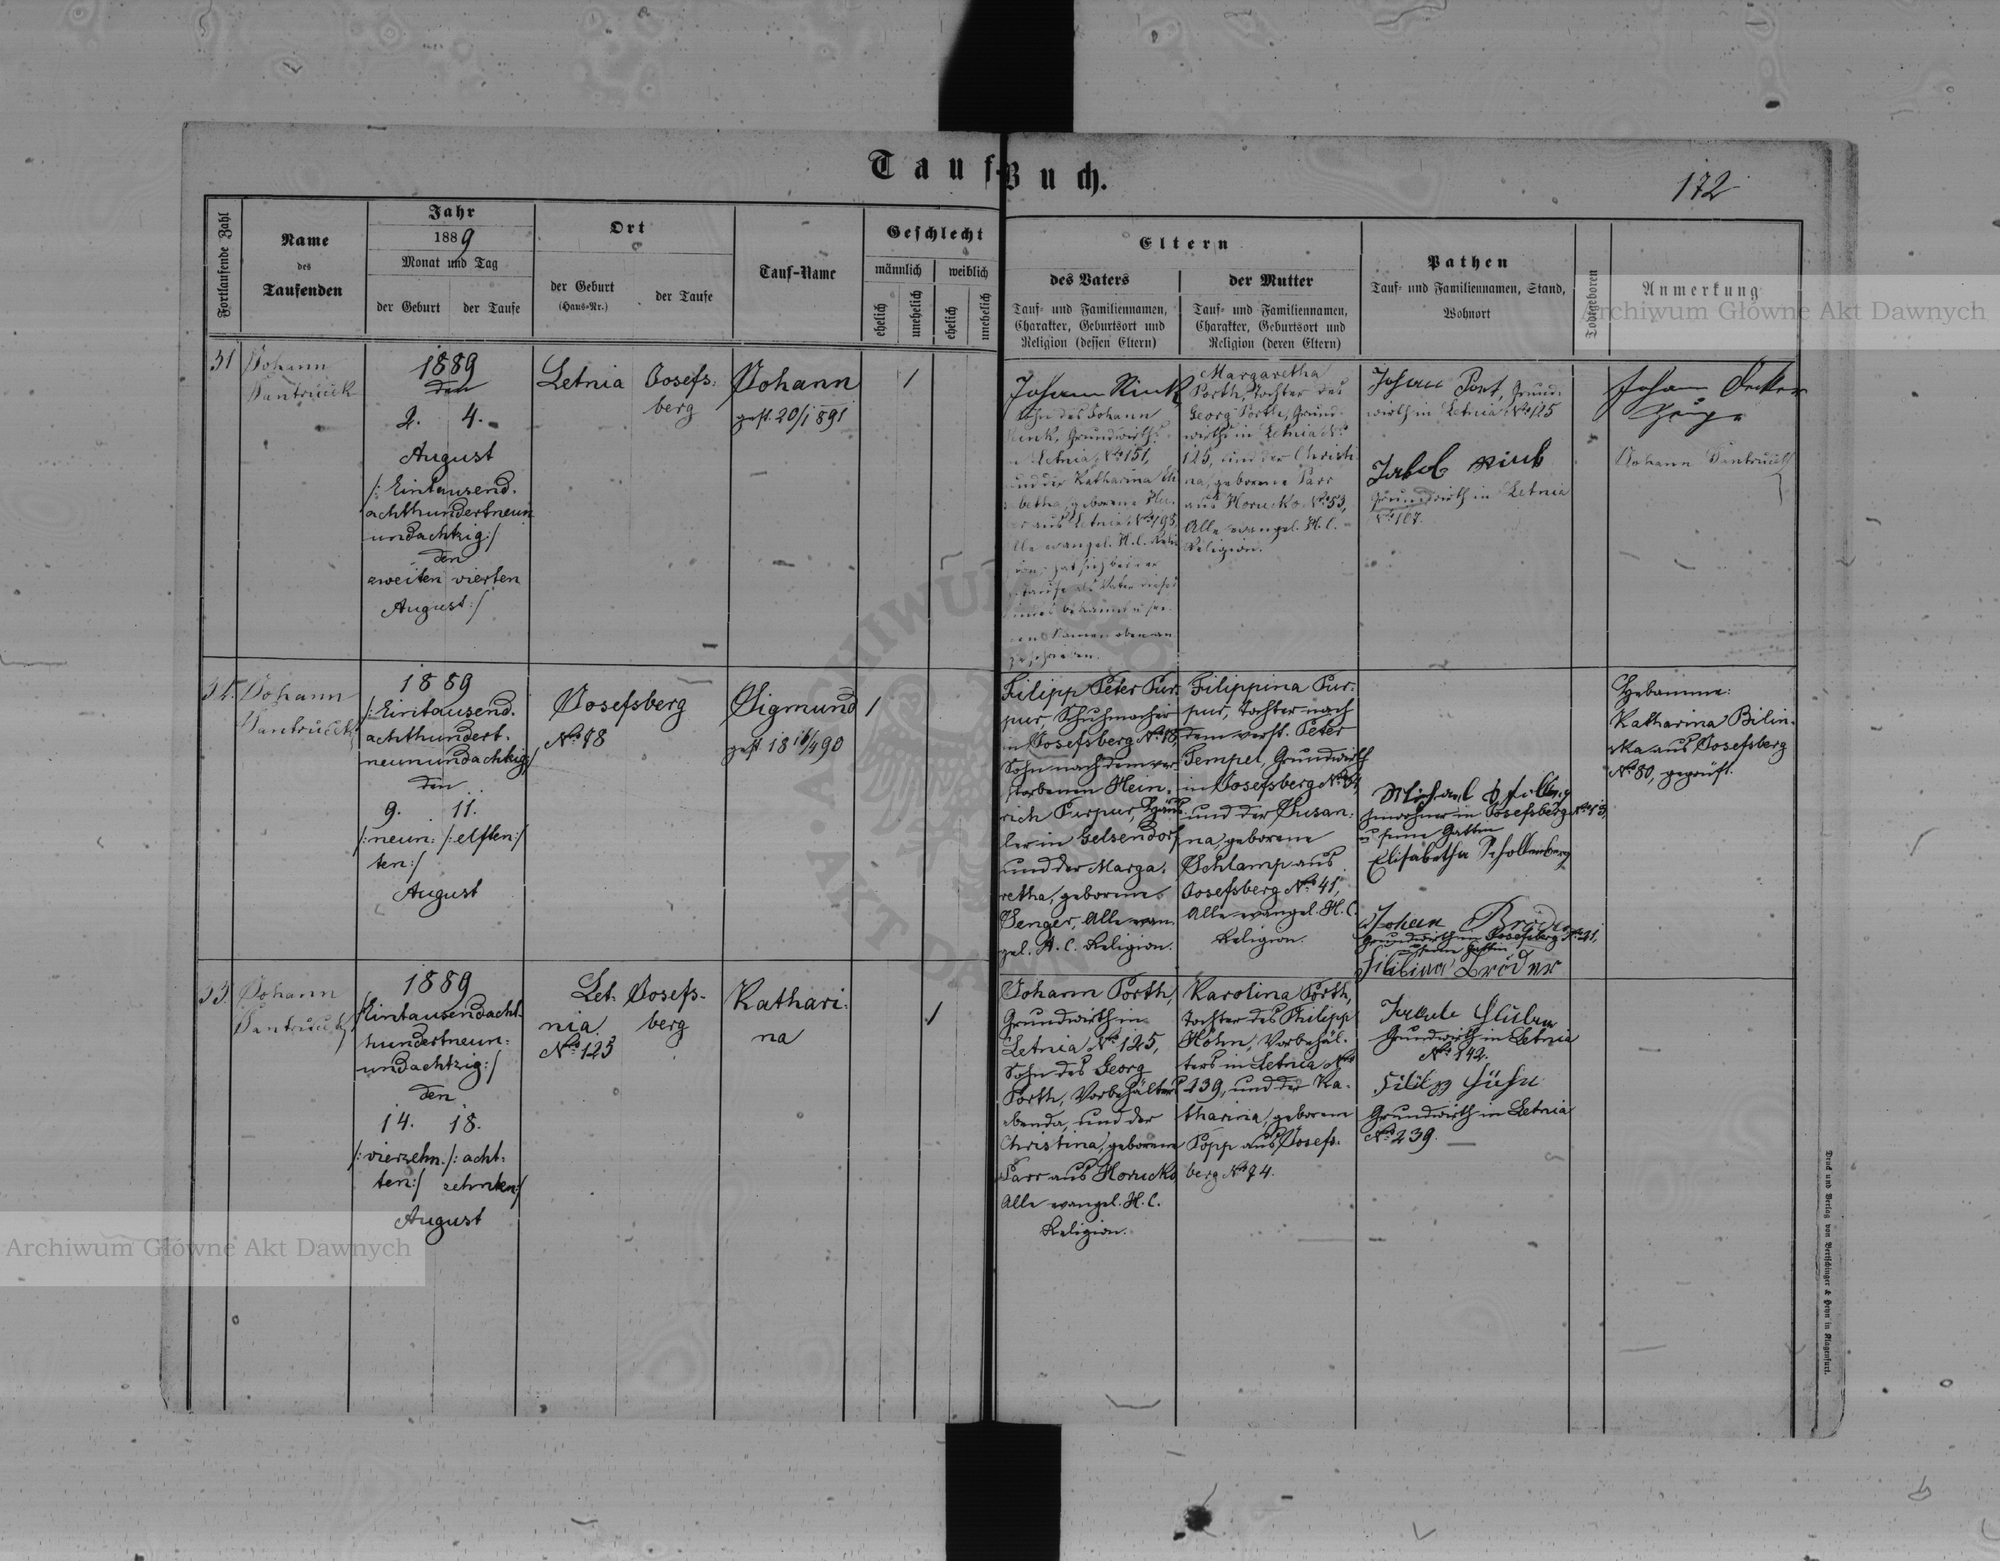 Tauf-Buch.
172
Fortlaufende Zahl
Name
des
Taufenden
Jahr
1889
Monat und Tag
der Geburt
der Taufe
Ort
der Geburt
(Haus-Nr.)
der Taufe
Tauf-Name
Geschlecht
männlich
weiblich
ehelich
unehelich
ehelich
unehelich
Eltern
des Vaters
Tauf- und Familiennamen,
Charakter, Geburtsort und
Religion (dessen Eltern)
der Mutter
Tauf- und Familiennamen,
Charakter, Geburtsort und
Religion (deren Eltern)
Pathen
Tauf- und Familiennamen, Stand,
Wohnort
Todtgeboren
Anmerkung
Archiwum Główne Akt Dawnych
31
Johann
1889
den
2. 4.
August
/: Eintausend.
achthundertneun
undachtzig:/
den
zweiten vierten
August:/
Letnia
Josefs-
berg
Johann
gest. 20/1 891
1
Johann Rink
Sohn des Johann
Rink, Grundwirths
Letnia, No 151,
und der Katharina Eli-
betha, geborene
aus Letnia, No 195,
Alle evangel. H. C. Reli
Margaretha
Porth, Tochter des
Georg Porth, Grund-
wirths in Letnia No
125, und der Christi-
na, geborene Parr
aus Horucko No 53,
Alle evangel. H. C.
Religion.
Johann Port, Grund-
wirth in Letnia No 125
Jakob Rink
Grundwirth in Letnia
No 167.
Johann Decker
Zeuge
Johann
32.
Johann
1889
/: Eintausend.
achthundert-
neunundachtzig:/
den
9. 11.
/: neun- /: elften:/
ten:/
August
Josefsberg
No 78
Sigmund
gest 18 16/4 90
1
Filipp Peter Pur-
pur, Schuhmacher
in Josefsberg No 78,
Sohn nach dem ver-
storbenen Hein-
rich Purpur, Häus-
ler in Gelsendorf
und der Marga-
retha, geborene
Senger, Alle evan-
gel. H. C. Religion.
Filippina Pur-
pur, Tochter nach
dem verst. Peter
Tempel, Grundwirth
in Josefsberg No
und der Susan-
na, geborene
Schlamp aus
Josefsberg No 41,
Alle evangel. H. C.
Religion.
Michael
Inwohner in Josefsberg No
u seine Gattin
Elisabetha Schollenberg
Johan Bröder
Grundwirth in Josefsberg No 21,
u seine Gattin
Bröder
Hebamme:
Katharina Bilin-
ska aus Josefsberg
No 80, geprüft.
33.
Johann
1889
/Eintausendacht-
hundertneun-
undachtzig:/
den
14. 18.
/: vierzehn- /: acht-
ten:/ zehnten:/
August
Let-
nia
No 125
Josefs-
berg
Kathari-
na
1
Johann Porth,
Grundwirth in
Letnia, No 125,
Sohn des Georg
Porth, Vorbehälters
ebenda, und der
Christina, geborene
Parr aus Horucko
Alle evangel. H. C.
Religion.
Karolina Porth,
Tochter des Philipp
Höhn, Vorbehäl-
ters in Letnia No
239, und der Ka-
tharina, geborene
Popp aus Josefs-
berg No 74.
Grundwirth in Letnia
No 142.
Filipp Höhn
Grundwirth in Letnia
No 239.
Archiwum Główne Akt Dawnych
Druck und Verlag von Bertschinger & Heyn in Klagenfurt.